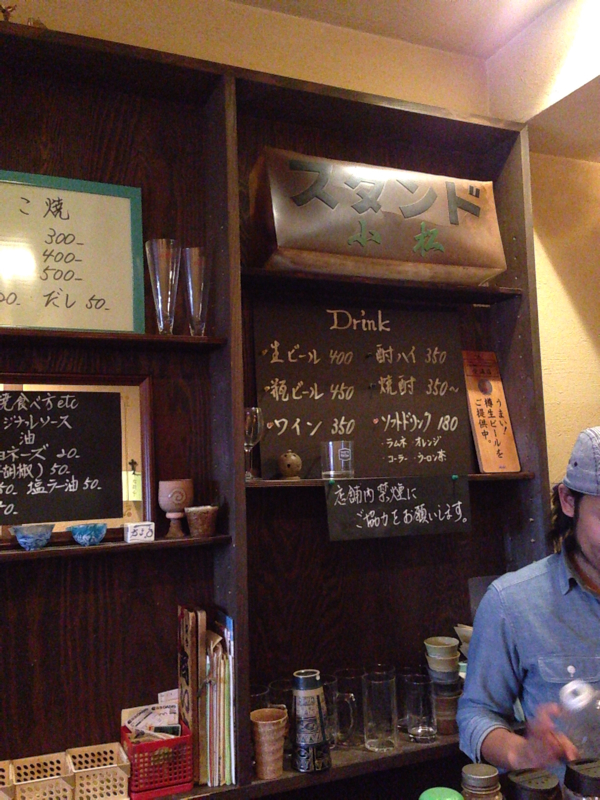 スタンド
小松
こ焼
300-
400-
500-
だし 50-
Drink
・生ビール 400
・瓶ビール 450
・ワイン 350
・酎ハイ 350
・焼酎 350〜
・ソフトドリンク 180
・ラムネ ・オレンジ
・コーラ ・ウーロン茶
うまい!
樽生ビールを
ご提供中。
店舗内禁煙に
ご協力をお願いします。
食べ方etc
ジナルソース
油
ヨネーズ 20-
胡椒) 50-
50- 塩ラー油 50-